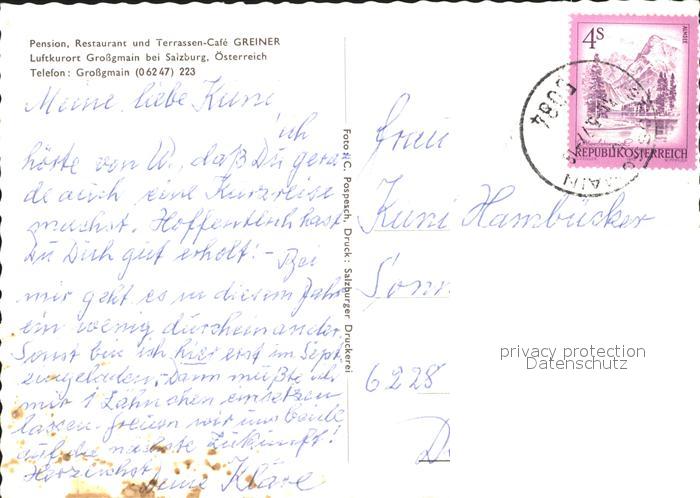 Pension, Restaurant und Terrassen-Café GREINER
Luftkurort Großgmain bei Salzburg, Österreich
Telefon: Großgmain (0 62 47) 223
Meine liebe Kuni
ich
hörte von U, daß Du gera
de auch eine Kurzreise
machst. Hoffentlich hast
Du Dich gut erholt! - Bei
mir geht es in diesem Jahr
ein wenig durcheinander.
Sonst bin ich hier erst im Sept.
eingeladen. Dann müßte ich
mir 1 Zähnchen einsetzen
lassen. freuen wir uns beide
auf die nächste Zukunft!
Herzlichst Deine Kläre
Foto: C. Pospesch, Druck: Salzburger Druckerei
4S
REPUBLIK ÖSTERREICH
5084
Frau
Kuni Hambücker
Sonn
6228
privacy protection
Datenschutz